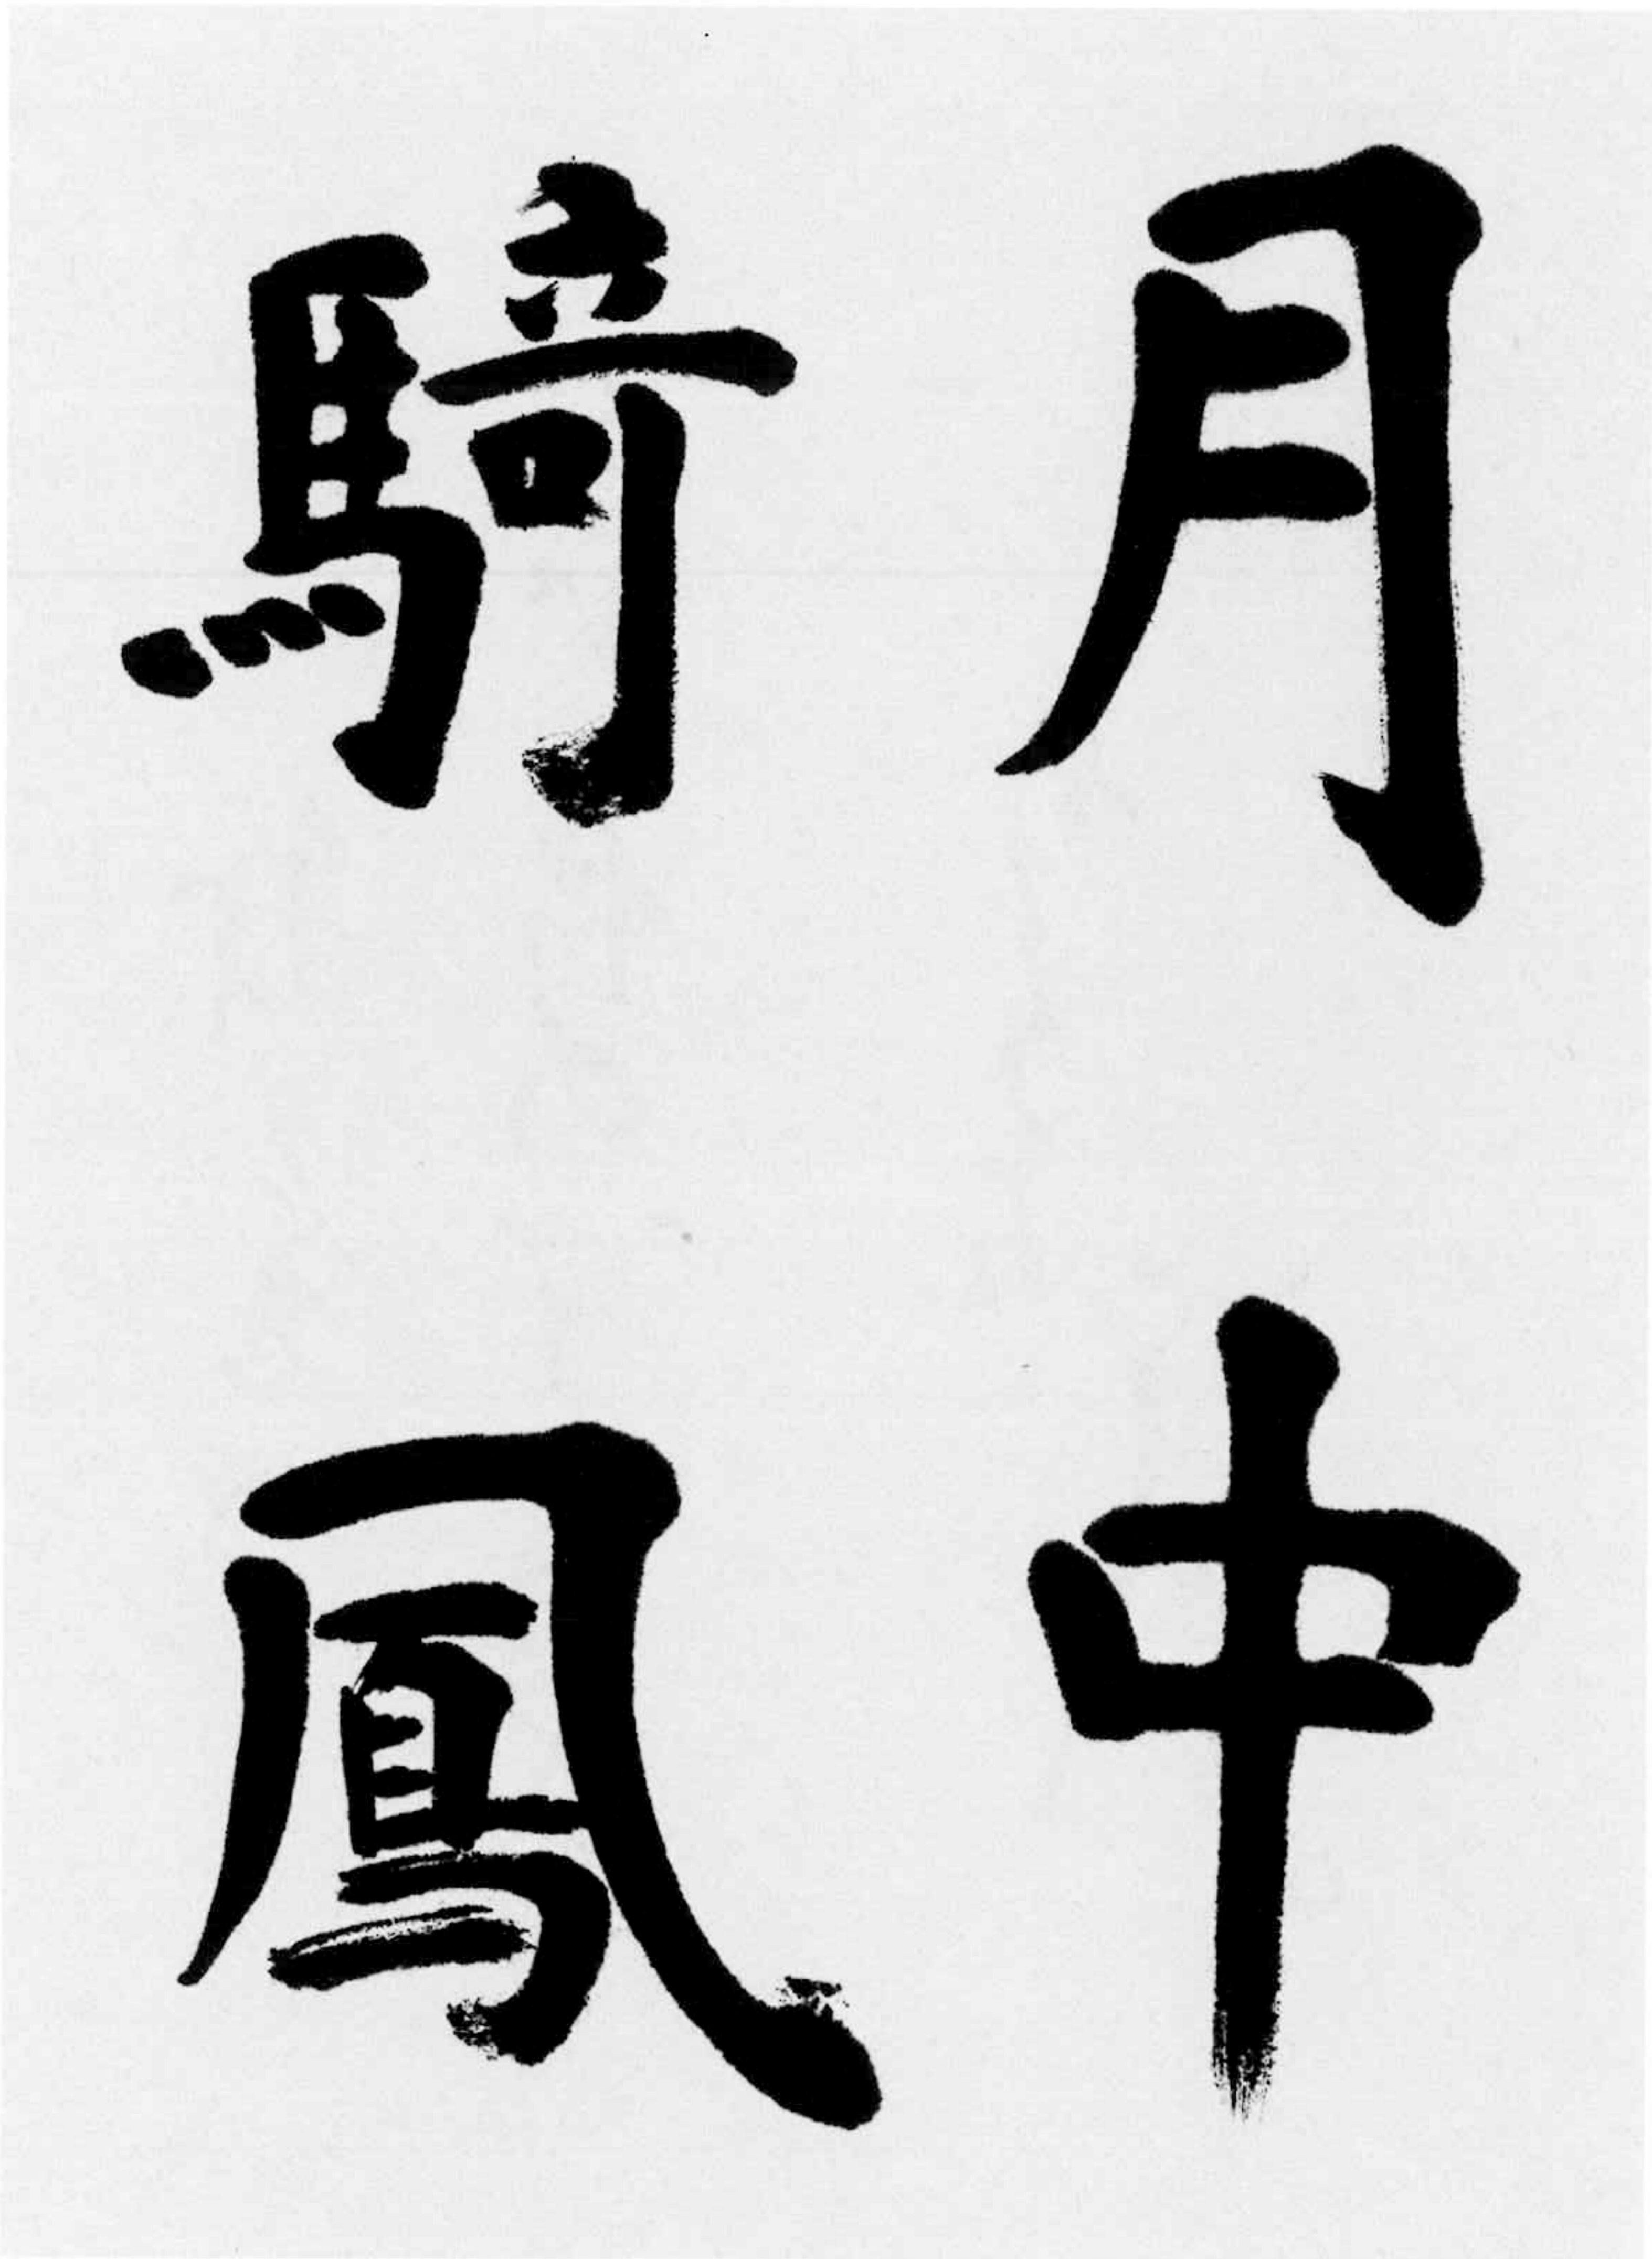 月中
騎鳳